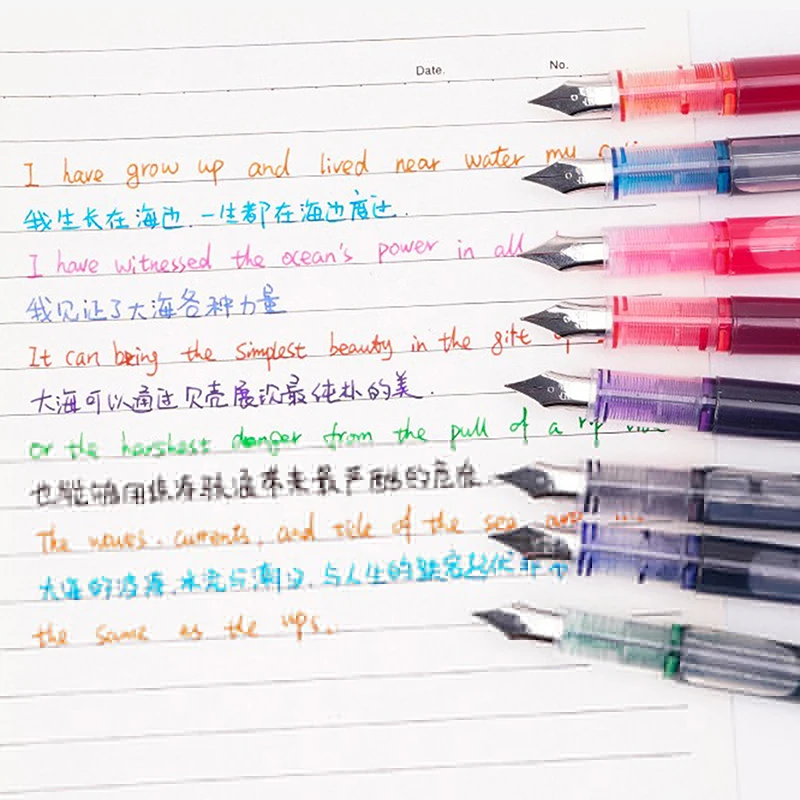 Date. No.
I have grow up and lived near water my
我生长在海边.一生都在海边度过.
I have witnessed the ocean's power in all
我见证了大海各种力量
It can bring the simplest beauty in the gift
大海可以通过贝壳展次最纯朴的美.
or the harshest danger from the pull of a rip
也能够用
The waves. currents, and tide of the sea
大海的波涛.水流与潮汐.与人生的跌宕起伏非常
the same as the ups.